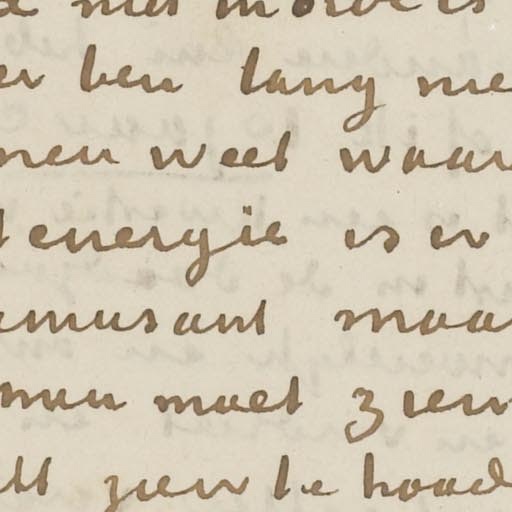 er ben lang me
men weet waar
energie is er
amusant maar
men moet zien
zien te houd